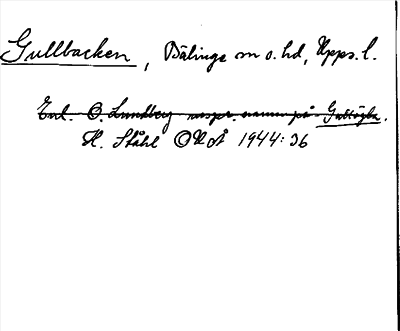 Gullbacken, Bälinge sn o. hd, Upps. l.
Enl. O. Lundberg urspr. namn på Gultögba.
H. Ståhl ONoÅ 1944:36